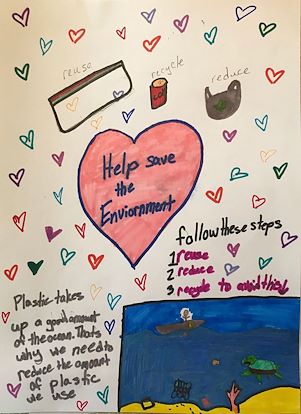 reuse
recycle
reduce
Help save
the
Enviornment
follow these steps
1 reuse
2 reduce
3 recycle to avoid this!
Plastic takes
up a good amount
of the ocean. Thats
why we need to
reduce the amount
of plastic
we use